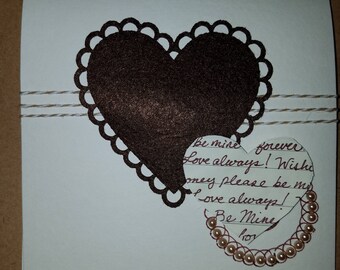 be mine forever
Love always! Wishe
oney please be m
Love always!
Be Mine